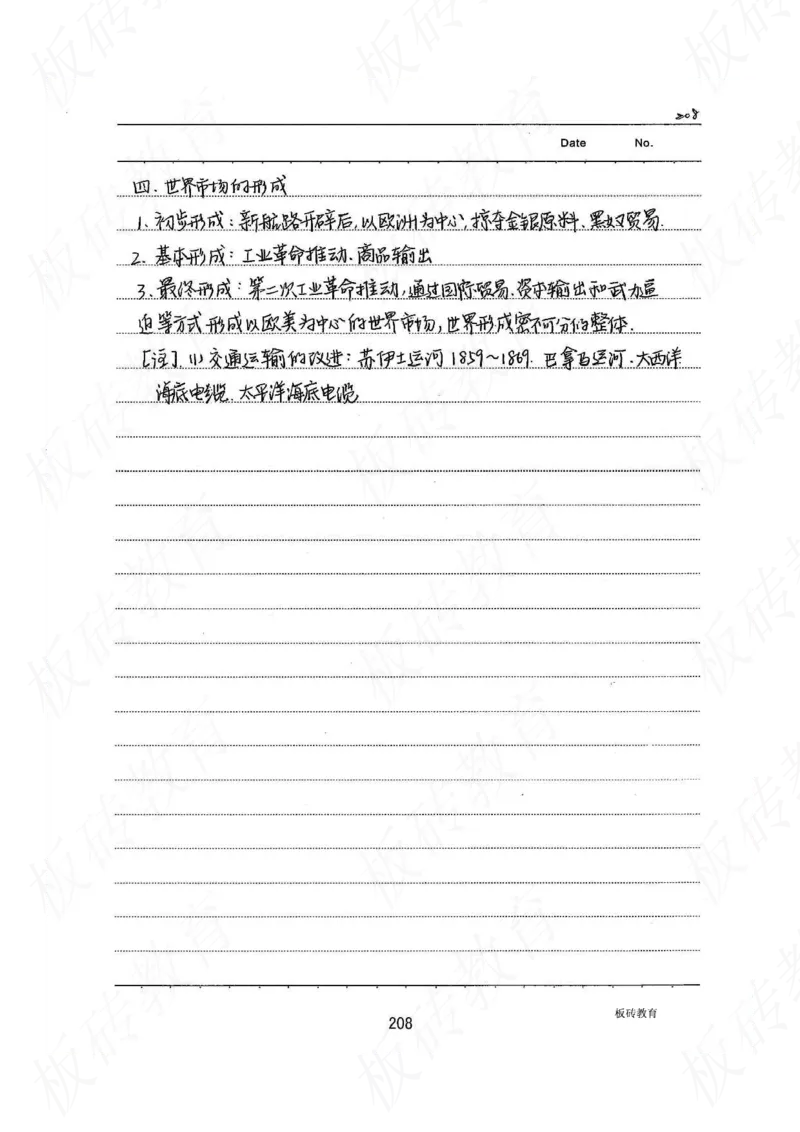 208
Date No.
四. 世界市场的形成
1. 初步形成：新航路开辟后，以欧洲为中心，掠夺金银原料、黑奴贸易.
2. 基本形成：工业革命推动、商品输出
3. 最终形成：第二次工业革命推动，通过国际贸易、资本输出和武力逼
迫等方式形成以欧美为中心的世界市场，世界形成密不可分的整体.
[注]. (1) 交通运输的改进：苏伊士运河 1859～1869. 巴拿马运河. 大西洋
海底电缆. 太平洋海底电缆
208
板砖教育